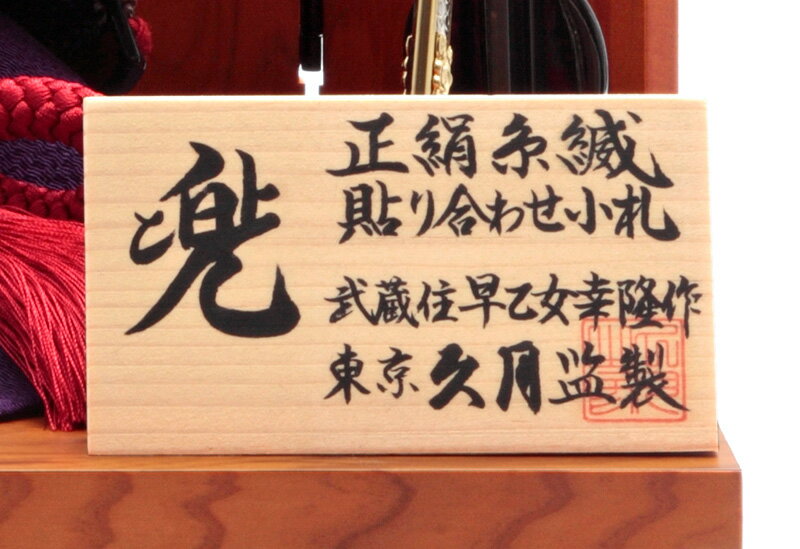 兜
正絹糸縅
貼り合わせ小札
武蔵住早乙女幸隆作
東京久月監製